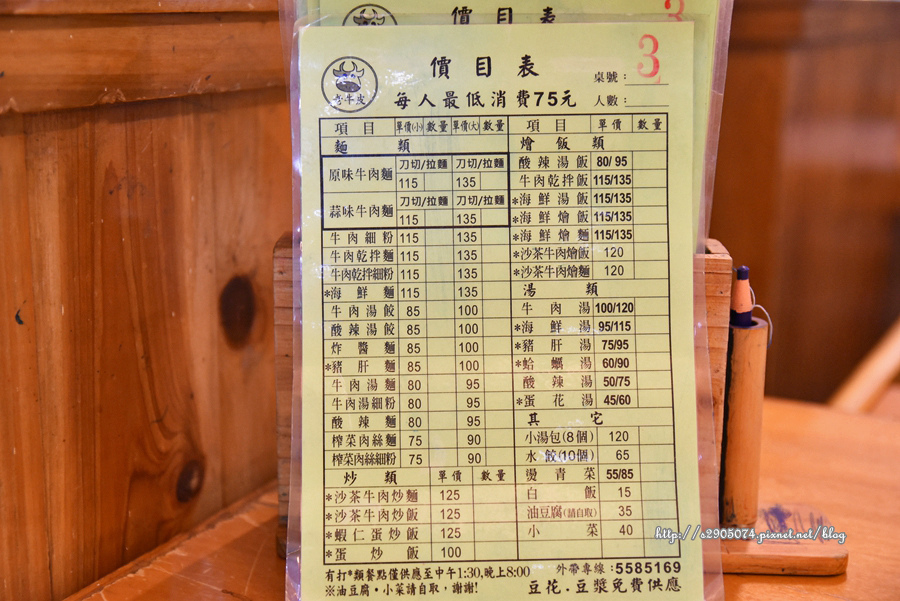 價目表
價目表
3
老牛皮
桌號：
每人最低消費75元
人數：
項目 單價(小) 數量 單價(大) 數量
麵類
原味牛肉麵 刀切/拉麵 刀切/拉麵
115 135
蒜味牛肉麵 刀切/拉麵 刀切/拉麵
115 135
牛肉細粉 115 135
牛肉乾拌麵 115 135
牛肉乾拌細粉 115 135
*海鮮麵 115 135
牛肉湯餃 85 100
酸辣湯餃 85 100
炸醬麵 85 100
*豬肝麵 85 100
牛肉湯麵 80 95
牛肉湯細粉 80 95
酸辣麵 80 95
榨菜肉絲麵 75 90
榨菜肉絲細粉 75 90
炒類 單價 數量
*沙茶牛肉炒麵 125
*沙茶牛肉炒飯 125
*蝦仁蛋炒飯 125
*蛋炒飯 100
項目 單價 數量
燴飯類
酸辣湯飯 80/95
牛肉乾拌飯 115/135
*海鮮湯飯 115/135
*海鮮燴飯 115/135
*海鮮燴麵 115/135
*沙茶牛肉燴飯 120
*沙茶牛肉燴麵 120
湯類
牛肉湯 100/120
*海鮮湯 95/115
*豬肝湯 75/95
*蛤蠣湯 60/90
酸辣湯 50/75
*蛋花湯 45/60
其它
小湯包(8個) 120
水餃(10個) 65
燙青菜 55/85
白飯 15
油豆腐(請自取) 35
小菜 40
有打*類餐點僅供應至中午1:30,晚上8:00
※油豆腐・小菜請自取，謝謝!
外帶專線：5585169
豆花.豆漿免費供應
http://s2905074.pixnet.net/blog